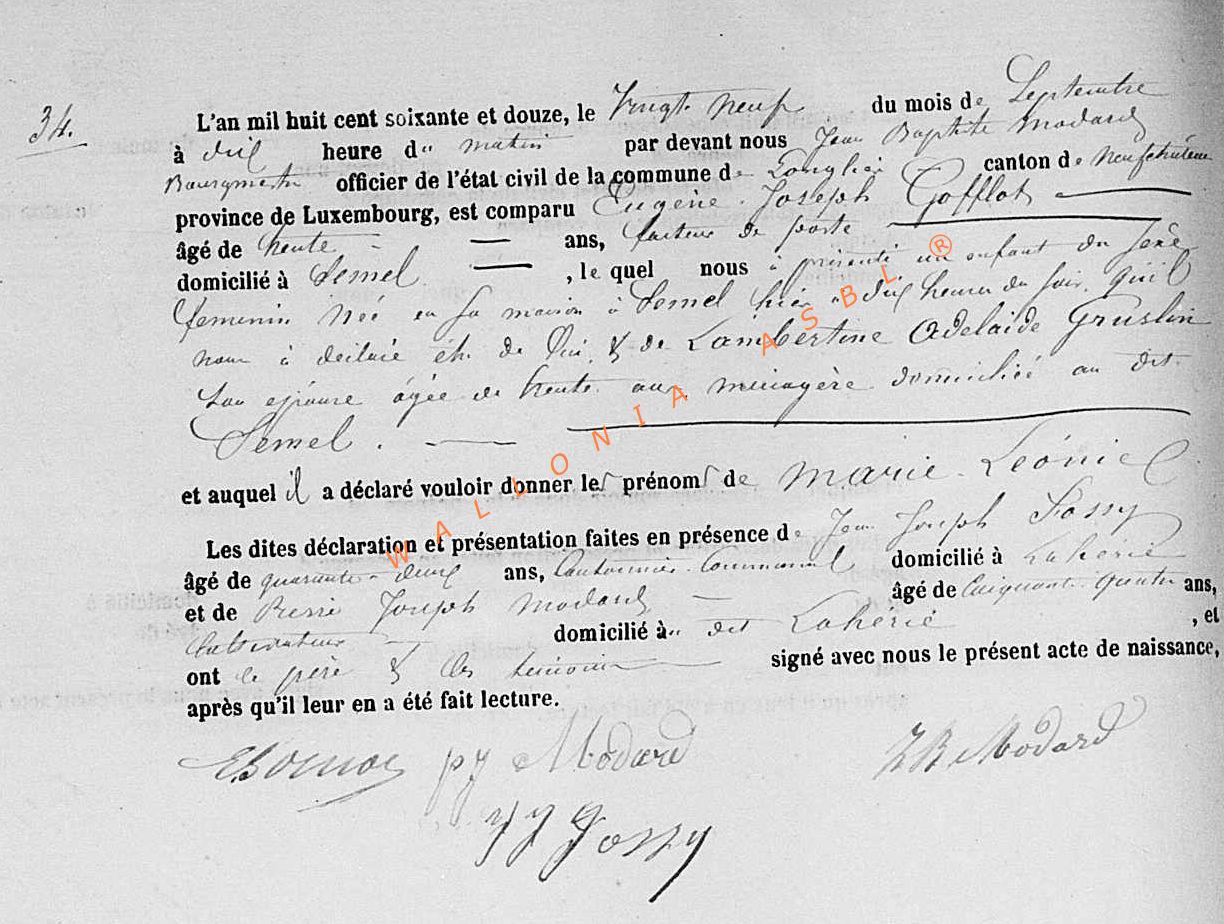 34.
L'an mil huit cent soixante et douze, le Vingt neuf du mois de Septembre
à dix heure du matin par devant nous Jean Baptiste Modard
Bourgmestre officier de l'état civil de la commune de Longlier canton de Neufchâteau
province de Luxembourg, est comparu Eugène Joseph Gofflot
âgé de trente ans, facteur de poste
domicilié à Semel , le quel nous à présenté un enfant du sexe
feminin née en sa maison à Semel hier à dix heures du soir, qu'il
nous à déclaré être de lui & de Lambertine Adelaïde Gruslin
son épouse âgée de trente ans ménagère domiciliée au dit
Semel.
et auquel il a déclaré vouloir donner les prénoms de Marie Léonie
Les dites déclaration et présentation faites en présence de Jean Joseph Fossy
âgé de quarante-deux ans, Cantonnier Communal domicilié à Laherie
et de Pierre Joseph Modard âgé de Cinquante quatre ans,
Cultivateur domicilié au dit Laherie , et
ont le père & les témoins signé avec nous le présent acte de naissance,
après qu'il leur en a été fait lecture.
pj Modard JB Modard
JJ Fossy
WALLONIA ASBL ®